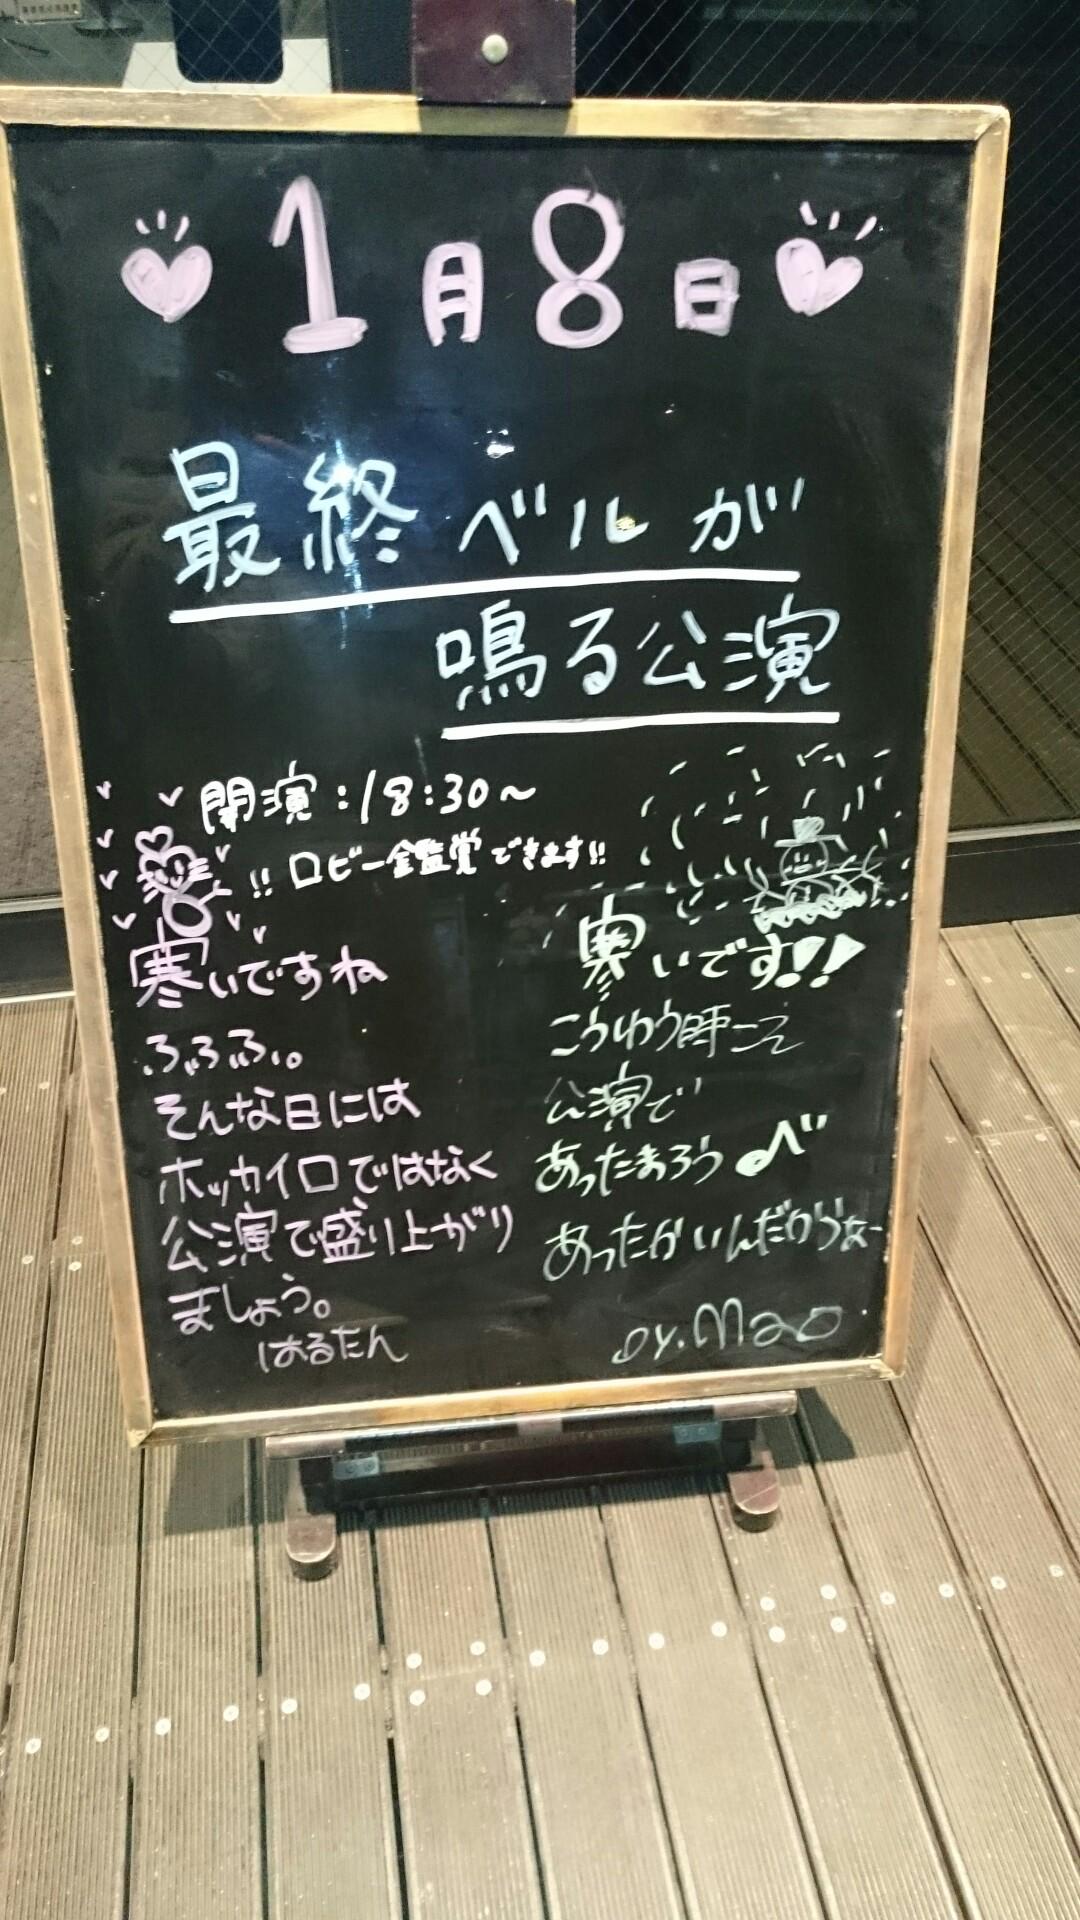 1月8日
最終ベルが
鳴る公演
開演:18:30~
!! ロビー鑑賞できます!!
寒いですね
ふふふ。
そんな日には
ホッカイロではなく
公演で盛り上がり
ましょう。
はるたん
寒いです!!
こうゆう時こそ
公演で
あったまろう♪
あったかいんだからぁー
by.Mao